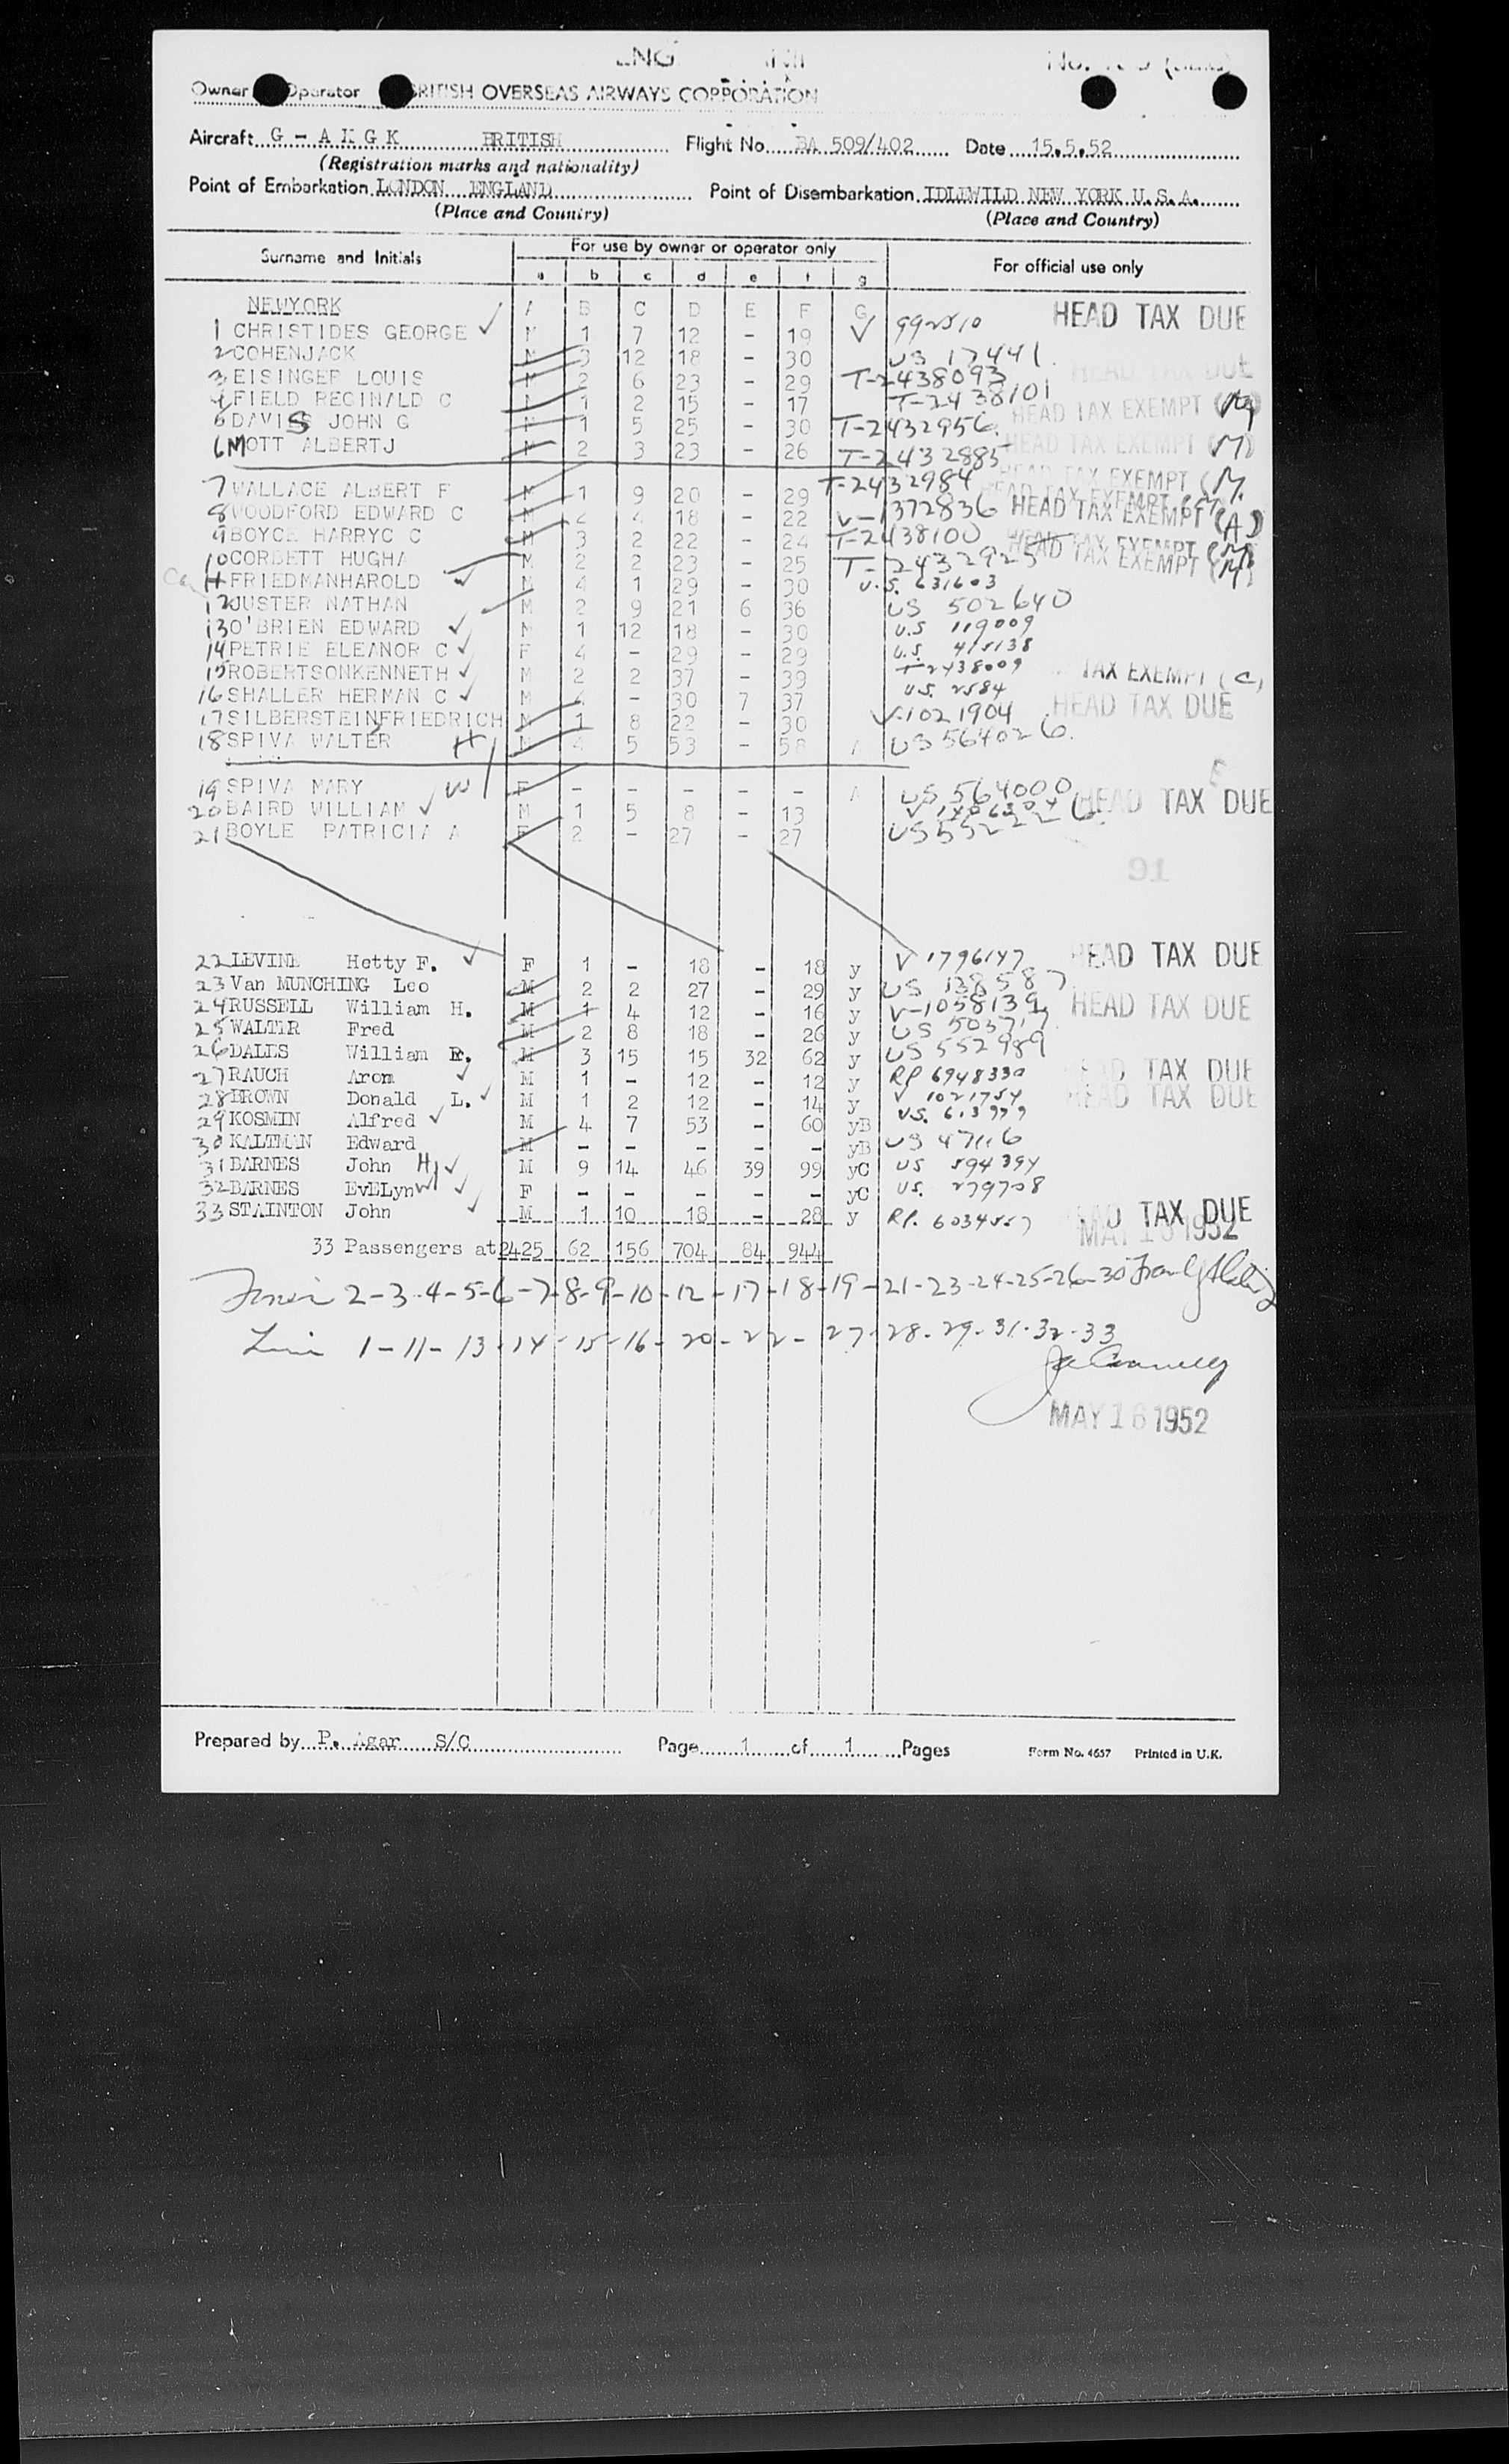 Owner Operator BRITISH OVERSEAS AIRWAYS CORPORATION
Aircraft G - A K G K BRITISH Flight No. BA 509/402 Date 15.5.52
(Registration marks and nationality)
Point of Embarkation LONDON ENGLAND Point of Disembarkation IDLEWILD NEW YORK U.S.A.
(Place and Country) (Place and Country)
Surname and Initials For use by owner or operator only For official use only
a b c d e f g
NEWYORK A B C D E F G HEAD TAX DUE
1 CHRISTIDES GEORGE ✓ M 1 7 12 - 19 V 992510
2 COHENJACK M 3 12 18 - 30 US 17441
3 EISINGER LOUIS M 2 6 23 - 29 T-2438093 HEAD TAX DUE
4 FIELD REGINALD C M 1 2 15 - 17 T-2438101
5 DAVIS JOHN G M 1 5 25 - 30 T-2432956 HEAD TAX EXEMPT
6 MOTT ALBERTJ M 2 3 23 - 26 T-2432885 HEAD TAX EXEMPT (M)
7 WALLACE ALBERT F M 1 9 20 - 29 T-2432984 HEAD TAX EXEMPT (M)
8 WOODFORD EDWARD C M 2 4 18 - 22 V-1372836 HEAD TAX EXEMPT (A)
9 BOYCE HARRYC C M 3 2 22 - 24 T-2438100 HEAD TAX EXEMPT (M)
10 CORBETT HUGHA M 2 2 23 - 25 T-2432925 HEAD TAX EXEMPT (M)
11 FRIEDMANHAROLD ✓ M 4 1 29 - 30 U.S. 631603
12 JUSTER NATHAN M 2 9 21 6 36 US 502640
13 O'BRIEN EDWARD ✓ M 1 12 18 - 30 U.S 119009
14 PETRIE ELEANOR C ✓ F 4 - 29 - 29 U.S. 415138
15 ROBERTSONKENNETH ✓ M 2 2 37 - 39 T-2438009 TAX EXEMPT (C)
16 SHALLER HERMAN C ✓ M 4 - 30 7 37 US. 2584 HEAD TAX DUE
17 SILBERSTEINFRIEDRICH M 1 8 22 - 30 V-1021904
18 SPIVA WALTER H M 4 5 53 - 58 A US 564026
19 SPIVA MARY W F - - - - - A US 564000
20 BAIRD WILLIAM ✓ M 1 5 8 - 13 HEAD TAX DUE
21 BOYLE PATRICIA A F 2 - 27 - 27 US 552226
91
22 LEVINE Hetty F. ✓ F 1 - 18 - 18 y V 1796147 HEAD TAX DUE
23 Van MUNCHING Leo M 2 2 27 - 29 y US 138587
24 RUSSELL William H. M 1 4 12 - 16 y V-1058139 HEAD TAX DUE
25 WALTER Fred M 2 8 18 - 26 y US 503717
26 DALLS William R. M 3 15 15 32 62 y US 552989
27 RAUCH Arom ✓ M 1 - 12 - 12 y RP 6948330 HEAD TAX DUE
28 BROWN Donald L. ✓ M 1 2 12 - 14 y V 1021754 HEAD TAX DUE
29 KOSMIN Alfred ✓ M 4 7 53 - 60 yB US. 613979
30 KALTMAN Edward M - - - - - yB US 47116
31 BARNES John H ✓ M 9 14 46 39 99 yC US 594394
32 BARNES EvELyn W ✓ F - - - - - yC US. 279708
33 STAINTON John ✓ M 1 10 18 - 28 y RP. 6034557 HEAD TAX DUE
MAY 16 1952
33 Passengers at 2425 62 156 704 84 944
2-3-4-5-6-7-8-9-10-12-17-18-19-21-23-24-25-26-30
1-11-13-14-15-16-20-22-27-28-29-31-32-33
MAY 16 1952
Prepared by P. Agar S/C Page 1 of 1 Pages Form No. 4657 Printed in U.K.